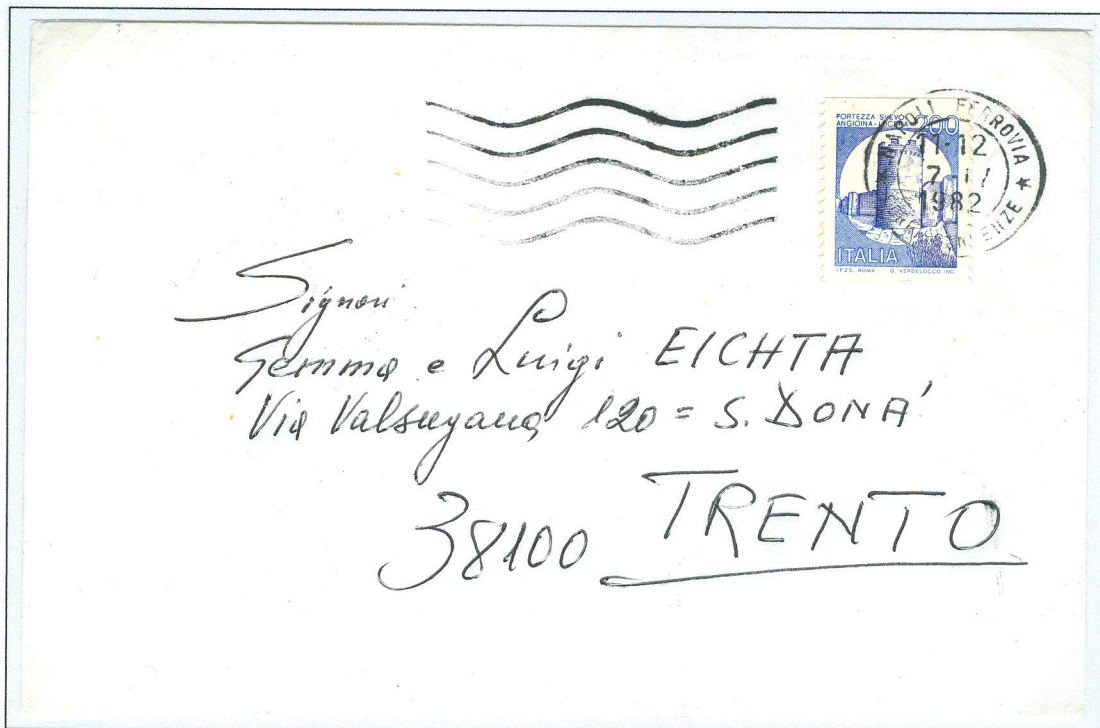 FORTEZZA SVEVO
ANGIOINA-LUCERA 200
ITALIA
I.P.Z.S. ROMA G. VERDELOCCO INC.
FERROVIA ★
11-12
1982
Signori
Gemma e Luigi EICHTA
Via Valsugana, 120 = S. DONA'
38100 TRENTO